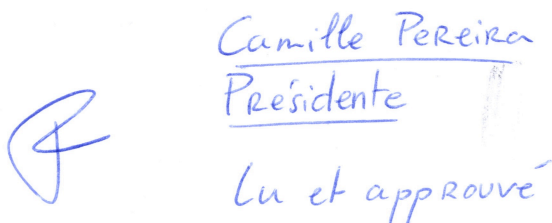 Camille Pereira
Présidente
Lu et approuvé